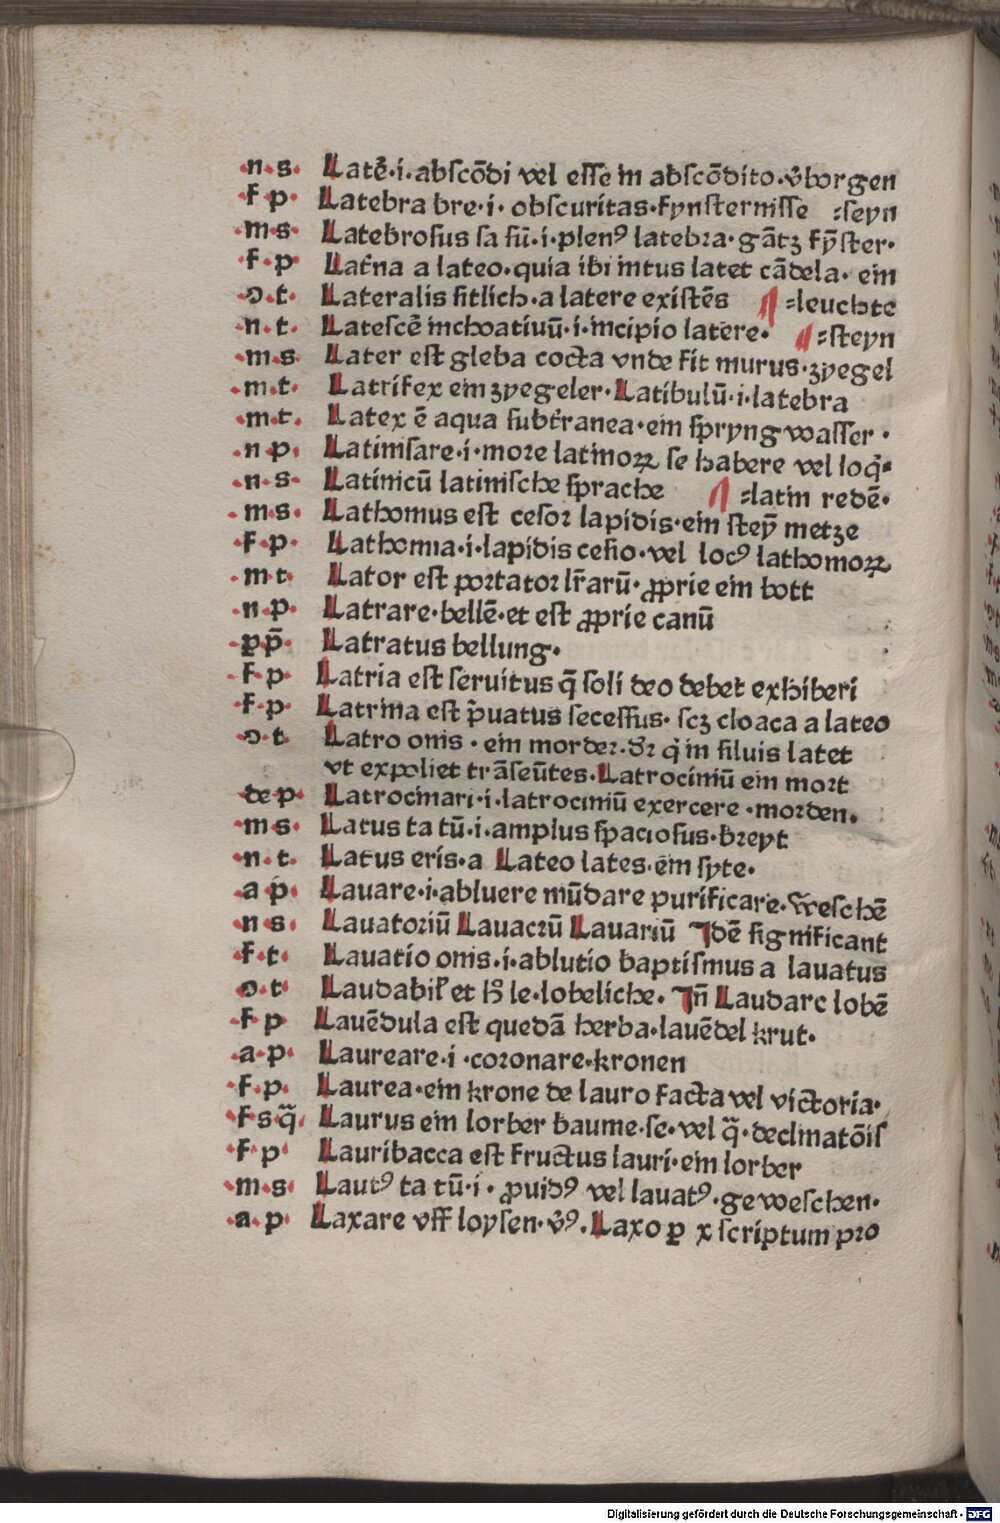 ·n·s· Latē·i·abſcōdi vel eſſe in abſcōdito·v̄borgen
·f·p· Latebra bre·i·obſcuritas·fynſterniſſe ⸗ſeyn
·m·s· Latebroſus ſa ſū·i·plenꝰ latebra·gātz fȳſter·
·f·p· Lat̄na a lateo·quia ibi intus latet cādela·ein
·o·t· Lateralis ſitlich·a latere exiſtēs ¶ ⸗leuchte
·n·t· Lateſcē inchoatiuū·i·incipio latere· ¶ ⸗ſteyn
·m·s· Later eſt gleba cocta vnde fit murus·zyegel
·m·t· Latrifex ein zyegeler·Latibulū·i·latebra
·m·t· Latex ē aqua ſubt̄ranea·ein ſpryng waſſer·
·n·p· Latiniſare·i·more latinoꝝ ſe habere vel loq̄⸗
·n·s· Latinicū latiniſche ſprache ¶ ⸗latin redē·
·m·s· Lathomus eſt ceſor lapidis·ein ſteȳ metze
·f·p· Lathomia·i·lapidis ceſio·vel locꝰ lathomoꝝ
·m·t· Lator eſt portator lr̄arū·ꝓprie ein bott
·n·p· Latrare·bellē·et eſt ꝓprie canū
·ꝑp̄· Latratus bellung·
·f·p· Latria eſt ſeruitus q̄ ſoli deo debet exhiberi
·f·p· Latrina eſt p̄uatus ſeceſſus·ſcꝫ cloaca a lateo
·o·t· Latro onis·ein morder·dr̄ q̄ in ſiluis latet
vt expoliet trāſeūtes·Latrociniū ein mort
·de·p· Latrocinari·i·latrociniū exercere·morden·
·m·s· Latus ta tū·i·amplus ſpacioſus·breyt
·n·t· Latus eris·a Lateo lates·ein ſyte·
·a·p· Lauare·i·abluere mūdare purificare·weſchē
·n·s· Lauatoriū Lauacrū Lauariū Idē ſignificant
·f·t· Lauatio onis·i·ablutio baptiſmus a lauatus
·o·t· Laudabil̄ et h̄ le·lobeliche·In̄ Laudare lobē
·f·p· Lauēdula eſt quedā herba·lauēdel krut·
·a·p· Laureare·i·coronare·kronen
·f·p· Laurea·ein krone de lauro facta vel victoria·
·f·s·q̄· Laurus ein lorber baume·ſe·vel q̄·declinatōiſ
·f·p· Lauribacca eſt fructus lauri·ein lorber
·m·s· Lautꝰ ta tū·i·ꝓuidꝰ vel lauatꝰ·geweſchen·
·a·p· Laxare vff loyſen·v̄ꝰ·Laxo ꝑ x ſcriptum pro
Digitalisierung gefördert durch die Deutsche Forschungsgemeinschaft - DFG